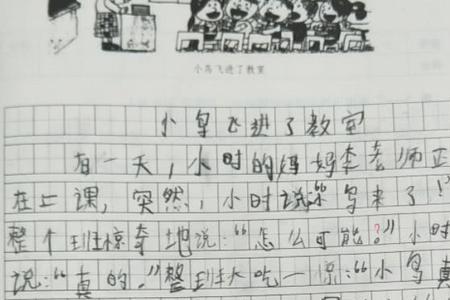 小鸟飞进了教室
小鸟飞进了教室
有一天，小时的妈妈李老师正
在上课，突然，小时说：“鸟来了！”
整个班惊奇地说：“怎么可能？”小时
说：“真的。”整班大吃一惊：“小鸟真